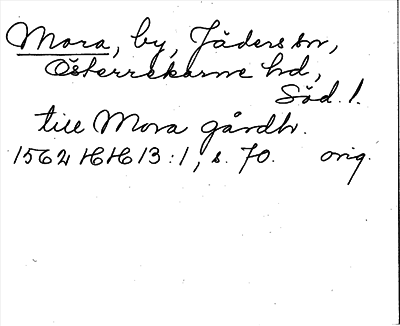 Mora, by, Jäders sn,
Österrekarne hd,
Söd. l.
till Mora gårdh.
1562 HH 13:1, s. 70. orig.